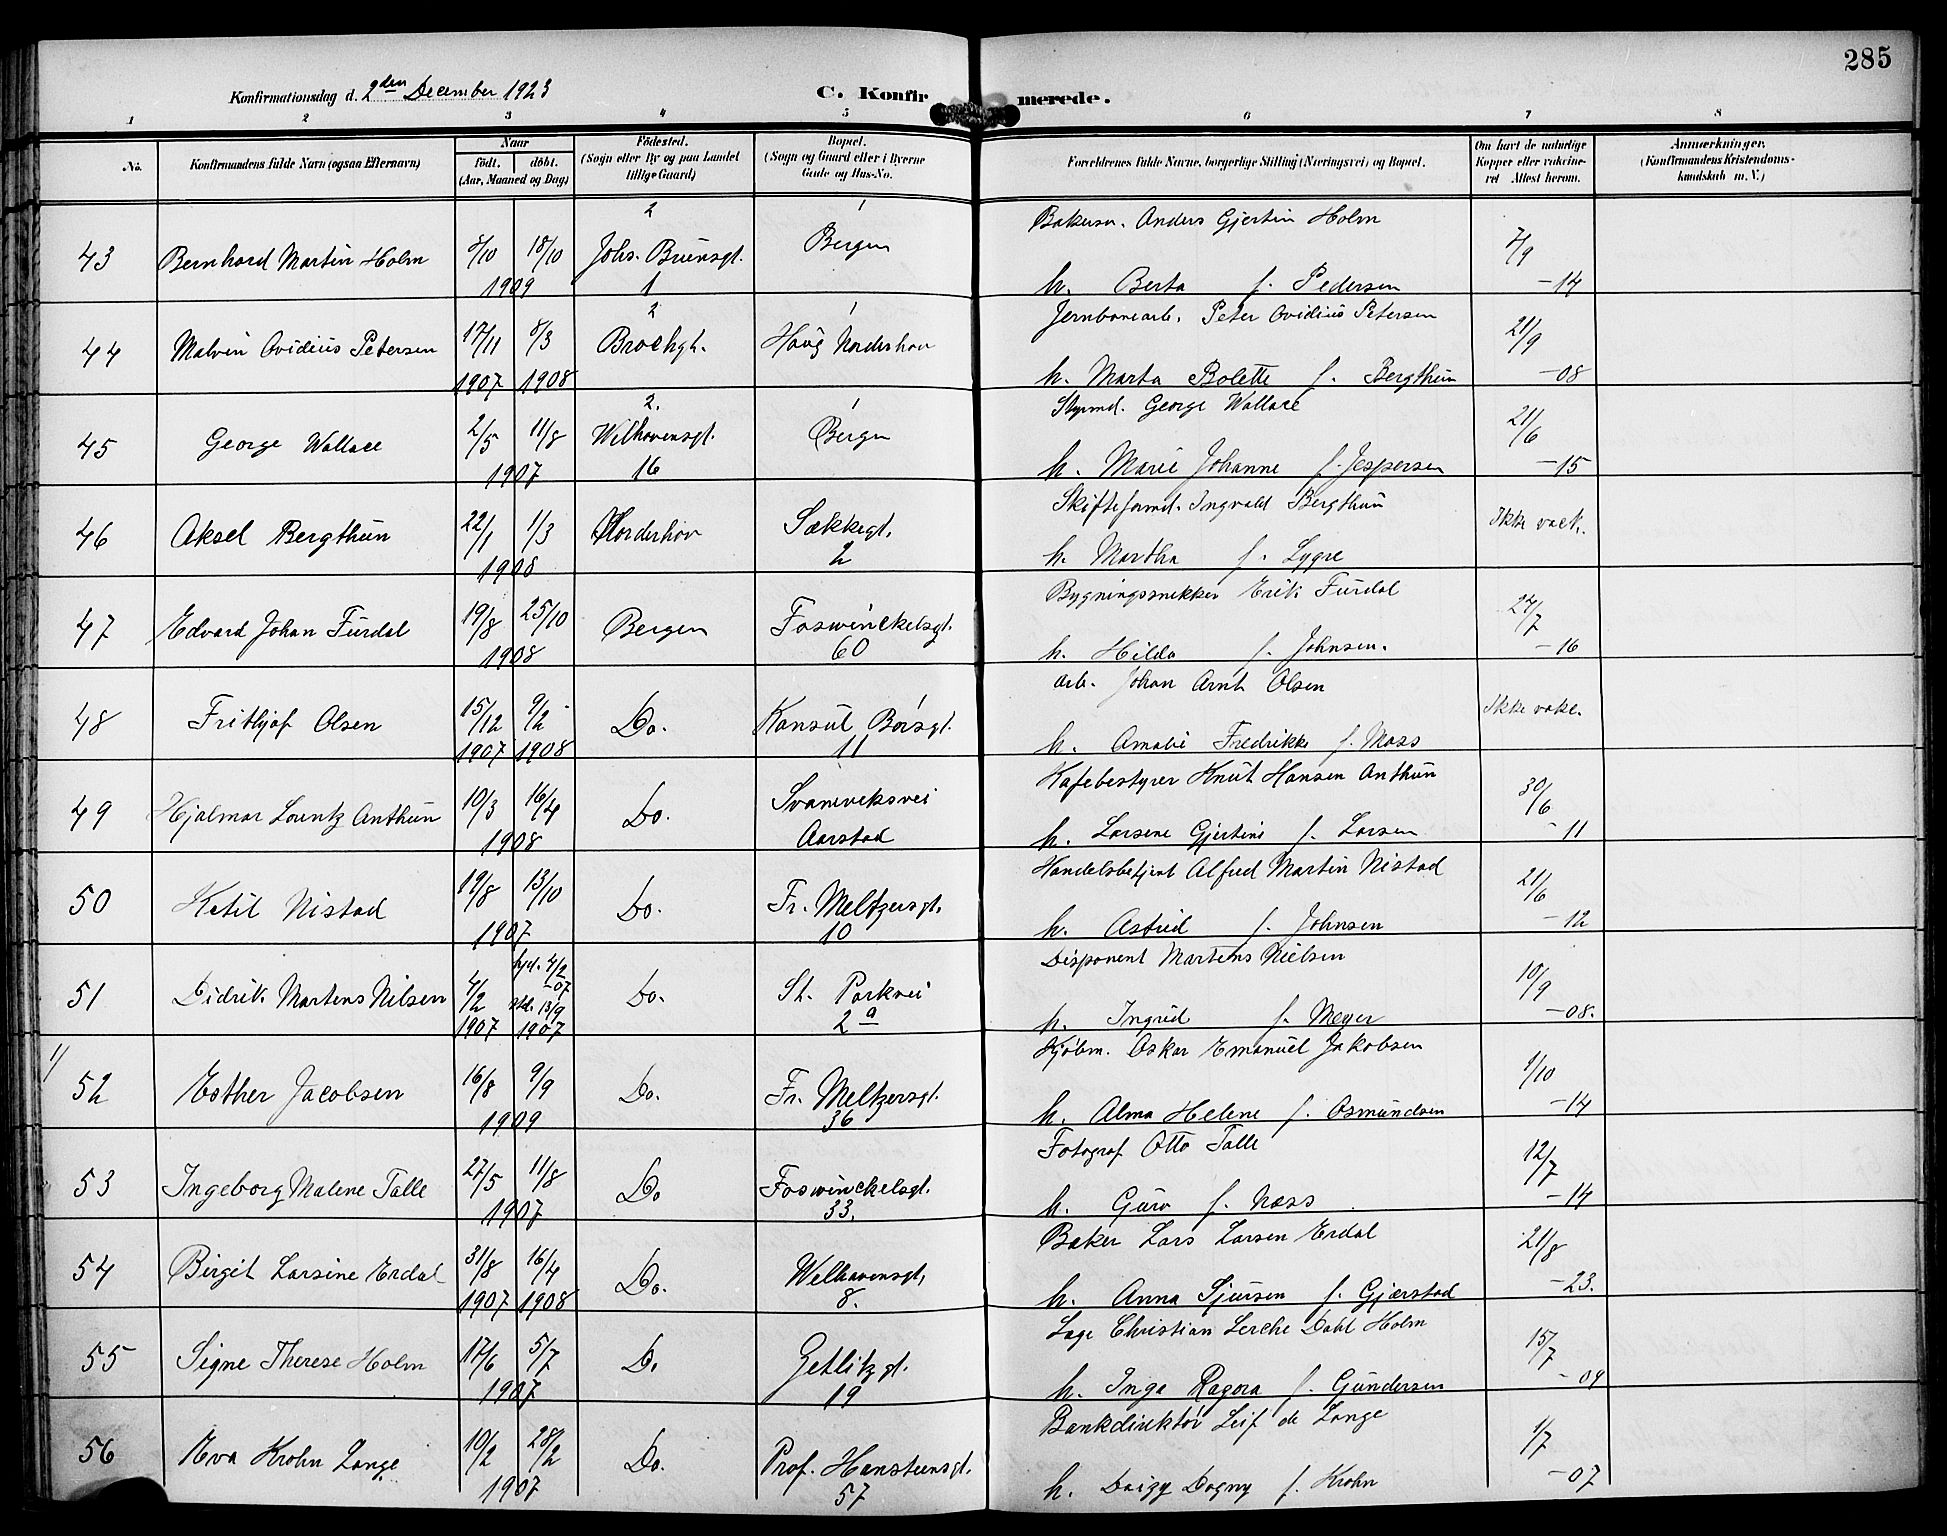 285
Konfirmationsdag d. 2den December 1923 C. Konfirmerede.
1 2 3 4 5 6 7 8
No. Konfirmandens fulde Navn (ogsaa Efternavn) Naar Födested. Bopæl. Forældrenes fulde Navne, borgerlige Stilling (Næringsvei) og Bopæl. Om havt de naturlige Anmærkninger.
födt. döbt. (Sogn eller By og paa Landet (Sogn og Gaard eller i Byerne Kopper eller vakcine- (Konfirmandens Kristendoms-
(Aar, Maaned og Dag) tillige Gaard) Gade og Hus-No. ret Attest herom. kundskab m. V.)
2 1 Bakersv. Anders Gjertin Holm
43 Bernhard Martin Holm 8/10 18/10 Johs. Brunsgt. Bergen 7/9
1909 1 h. Berta f. Pedersen -14
2 1 Jernbanearb. Peter Ovidius Petersen
44 Malvin Ovidius Petersen 17/11 8/3 Brochgt. Haug Norderhov 21/9
1907 1908 h. Marta Bolette f. Bergthun -08
2. 1 Styrmd. George Wallace
45 George Wallace 2/5 11/8 Welhavensgt. Bergen 21/6
1907 16 h. Marie Johanne f. Jespersen -15
Skifteformd. Ingvald Bergthun
46 Aksel Bergthun 22/1 1/3 Norderhov Sækkegt. Ikke vack.
1908 2 h. Martha f. Lygre
Bygningssnekker Erik Furdal
47 Edvard Johan Furdal 19/8 25/10 Bergen Foswinckelsgt. 27/7
1908 60 h. Hilda f. Johnsen. -16
Arb. Johan Arnt Olsen
48 Frithjof Olsen 15/12 9/2 Do. Konsul Børsgt. Ikke vake.
1907 1908 11 h. Amalie Fredrikke f. Moss
Kafebestyrer Knut Hansen Anthun
49 Hjalmar Lorentz Anthun 10/3 16/4 Do. Svaneviksvei 30/6
1908 Aarstad h. Larsine Gjertine f. Larsen -11
Handelsbetjent Alfred Martin Nistad
50 Ketil Nistad 19/8 13/10 Do. Fr. Meltzersgt. 21/6
1907 10 h. Astrid f. Johnsen -12
hjd. 4/2 Disponent Martens Nielsen
-07
51 Didrik Martens Nilsen 4/2 13/9 Do. St. Parkvei 10/9
1907 1907 2a h. Ingrid f. Meyer -08.
1/ Kjøbm. Oskar Emanuel Jakobsen
52 Esther Jacobsen 16/8 9/9 Do. Fr. Meltzersgt. 1/10
1909 36 h. Alma Helene f. Osmundsen -14
Fotograf Otto Talle
53 Ingeborg Malene Talle 27/5 11/8 Do Foswinckelsgt. 12/7
1907 33. h. Guro f. Næss -14
Baker Lars Larsen Erdal
54 Birgit Larsine Erdal 31/8 16/4 Do. Welhavensgt. 21/8
1907 1908 8. h. Anna Sjursen f. Gjærstad -23.
Læge Christian Lerche Dahl Holm
55 Signe Therese Holm 17/6 5/7 D. Zetlitzgt. 15/7
1907 19 h. Inga Ragora f. Gundersen -09
Bankdirektør Leif de Lange
56 Eva Krohn Lange 10/2 28/2 Do. Prof. Hansteensgt. 1/7
1907 57 h. Daizy Dagny f. Krohn -07